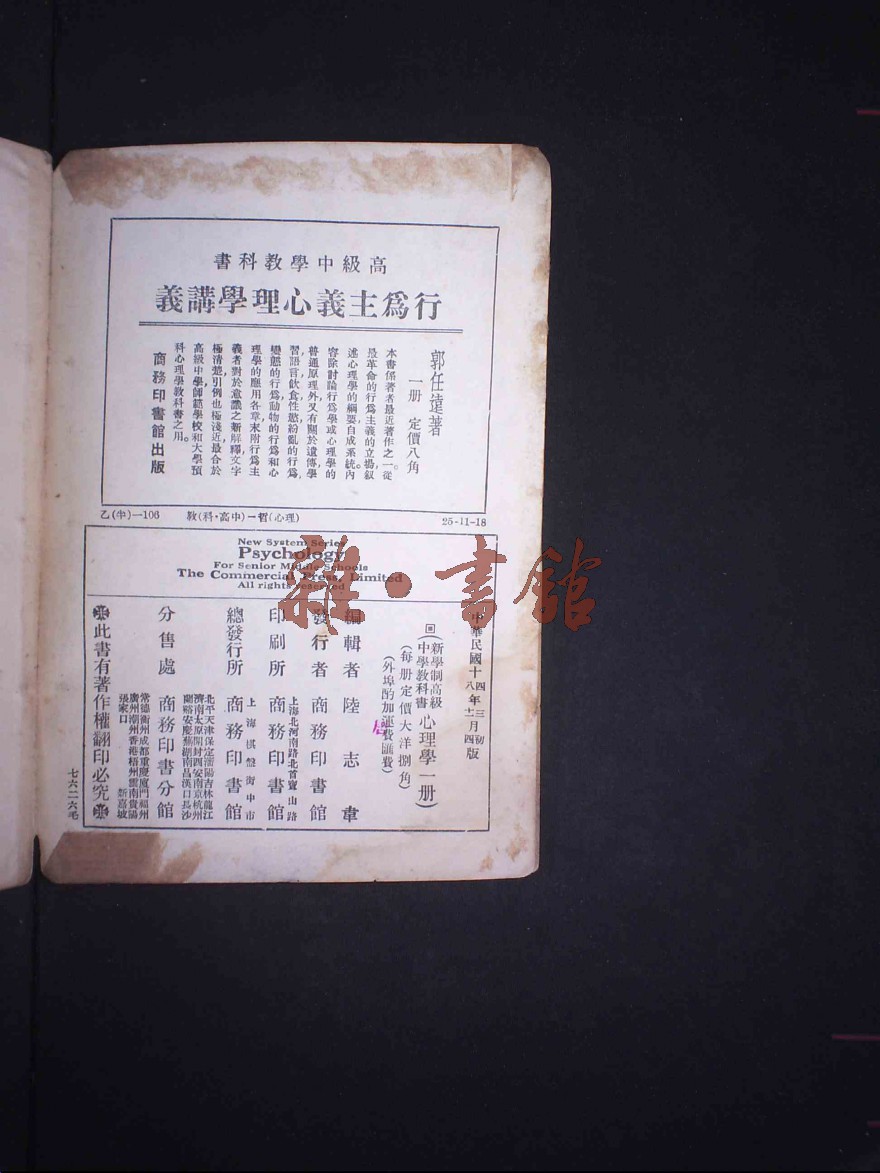 高級中學教科書
行爲主義心理學講義
郭任遠著
一册 定價八角
本書係著者最近著作之一。從
最革命的行爲主義的立場叙
述心理學的綱要自成系統。內
容除討論行爲學或心理學的
普通原理外又有關於遺傳學
習,語言,飲食,性慾,紛亂的行爲,
變態的行爲,動物的行爲和心
理學的應用各章。末附行爲主
義者對於意識之新解釋。文字
極清楚,引例也極淺近最合於
高級中學師範學校和大學預
科心理學教科書之用。
商務印書館出版
乙(半)—106 教(科·高中)—哲(心理) 25-11-18
New System Series
Psychology
For Senior Middle Schools
The Commercial Press, Limited
All rights reserved
中華民國十四年三月初版
十八年十二月四版
新學制高級中學教科書 心理學一册
(每册定價大洋捌角)
(外埠酌加運費匯費)
編輯者 陸志韋
發行者 商務印書館
上海北河南路北首寶山路
印刷所 商務印書館
上海棋盤街中市
總發行所 商務印書館
北平天津保定瀋陽吉林龍江
濟南太原開封西安南京杭州
蘭谿安慶蕪湖南昌漢口長沙
分售處 商務印書分館
常德衡州成都重慶厦門福州
廣州潮州香港梧州雲南貴陽
張家口 新嘉坡
此書有著作權翻印必究
七六二六毛
雜·書館